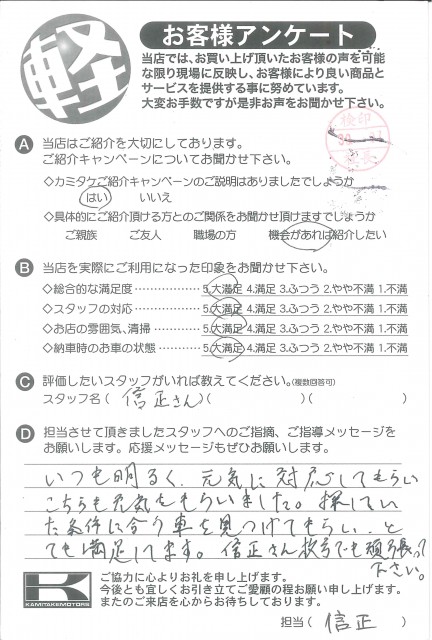 軽
お客様アンケート
当店では、お買い上げ頂いたお客様の声を可能
な限り現場に反映し、お客様により良い商品と
サービスを提供する事に努めています。
大変お手数ですが是非お声をお聞かせ下さい。
検印
社長
A 当店はご紹介を大切にしております。
ご紹介キャンペーンについてお聞かせ下さい。
◇カミタケご紹介キャンペーンのご説明はありましたでしょうか
はい いいえ
◇具体的にご紹介頂ける方とのご関係をお聞かせ頂けますでしょうか
ご親族 ご友人 職場の方 機会があれば紹介したい
B 当店を実際にご利用になった印象をお聞かせ下さい。
◇総合的な満足度 ‥‥‥‥‥‥ 5.大満足 4.満足 3.ふつう 2.やや不満 1.不満
◇スタッフの対応 ‥‥‥‥‥‥ 5.大満足 4.満足 3.ふつう 2.やや不満 1.不満
◇お店の雰囲気、清掃 ‥‥‥‥ 5.大満足 4.満足 3.ふつう 2.やや不満 1.不満
◇納車時のお車の状態 ‥‥‥‥ 5.大満足 4.満足 3.ふつう 2.やや不満 1.不満
C 評価したいスタッフがいれば教えてください。(複数回答可)
スタッフ名( 信正さん )( )( )
D 担当させて頂きましたスタッフへのご指摘、ご指導メッセージを
お願いします。応援メッセージもぜひお願いします。
いつも明るく、元気に対応してもらい
こちらも元気をもらいました。探してい
た条件に合う車を見つけてもらい、と
ても満足してます。信正さん次号でも頑張って
下さい。
K
KAMITAKEMOTORS
ご協力に心よりお礼を申し上げます。
今後とも宜しくお引き立てご愛顧の程お願い申し上げます。
またのご来店を心からお待ちしております。
担当( 信正 )